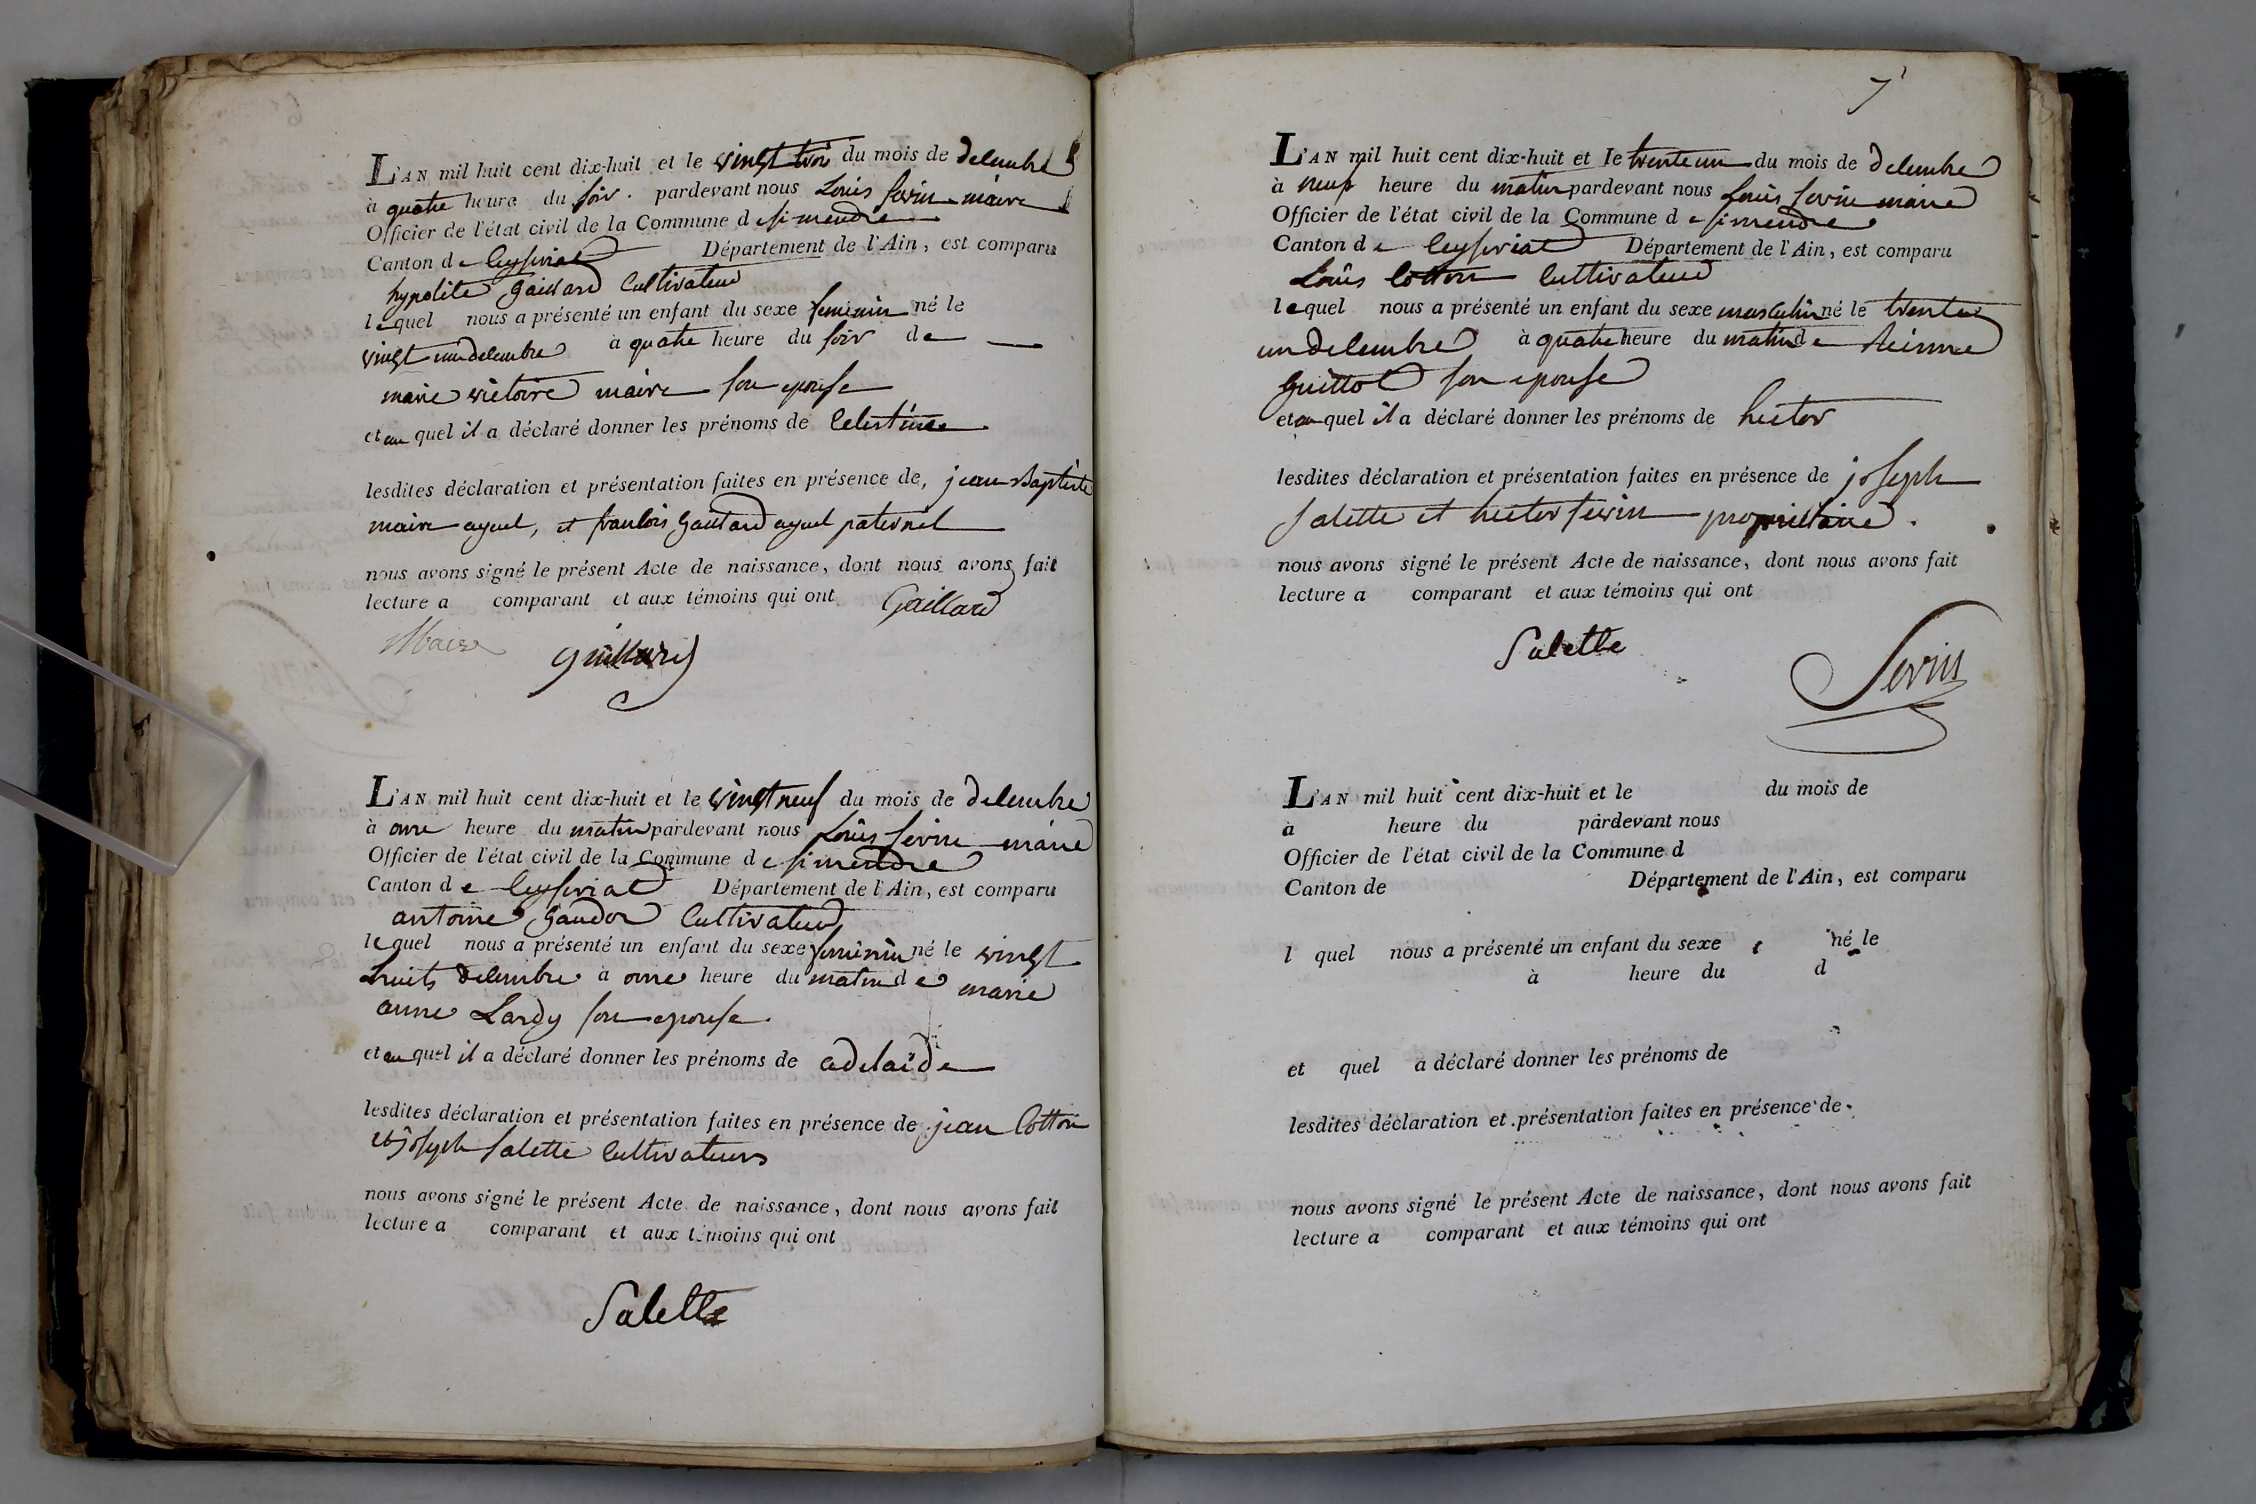 L'AN mil huit cent dix-huit et le vingt trois du mois de decembre
à quatre heure du soir. pardevant nous Louis Sevin maire
Officier de l'état civil de la Commune de simendre
Canton de Ceyseriat Département de l'Ain, est comparu
hypolite Gaillard Cultivateur
lequel nous a présenté un enfant du sexe feminin né le
vingt un decembre à quatre heure du soir de
marie victoire maire son epouse
et au quel il a déclaré donner les prénoms de Celestine
lesdites déclaration et présentation faites en présence de, jean Baptiste
maire ayeul, et francois Gaillard ayeul paternel
nous avons signé le présent Acte de naissance, dont nous avons fait
lecture a comparant et aux témoins qui ont Gaillard
Maire Guillard
L'AN mil huit cent dix-huit et le vingt neuf du mois de decembre
à onze heure du matin pardevant nous Louis Sevin maire
Officier de l'état civil de la Commune de simendre
Canton de Ceyseriat Département de l'Ain, est comparu
antoine Gaudor Cultivateur
lequel nous a présenté un enfant du sexe feminin né le vingt
huits decembre à onze heure du matin de marie
anne Lardy son epouse.
et au quel il a déclaré donner les prénoms de adelaïde
lesdites déclaration et présentation faites en présence de jean Cotton
et joseph Salette Cultivateurs
nous avons signé le présent Acte de naissance, dont nous avons fait
lecture a comparant et aux témoins qui ont
Salette
7
L'AN mil huit cent dix-huit et le trente un du mois de decembre
à neuf heure du matin pardevant nous Louis Sevin maire
Officier de l'état civil de la Commune de simendre
Canton de Ceyseriat Département de l'Ain, est comparu
Louis Cotton Cultivateur
lequel nous a présenté un enfant du sexe masculin né le trente
un decembre à quatre heure du matin de
Guittot son epouse
et au quel il a déclaré donner les prénoms de hector
lesdites déclaration et présentation faites en présence de joseph
Salette et hector Sevin propriétaire.
nous avons signé le présent Acte de naissance, dont nous avons fait
lecture a comparant et aux témoins qui ont
Salette
Sevin
L'AN mil huit cent dix-huit et le du mois de
à heure du pardevant nous
Officier de l'état civil de la Commune d
Canton de Département de l'Ain, est comparu
l quel nous a présenté un enfant du sexe né le
à heure du d
et quel a déclaré donner les prénoms de
lesdites déclaration et présentation faites en présence de
nous avons signé le présent Acte de naissance, dont nous avons fait
lecture a comparant et aux témoins qui ont